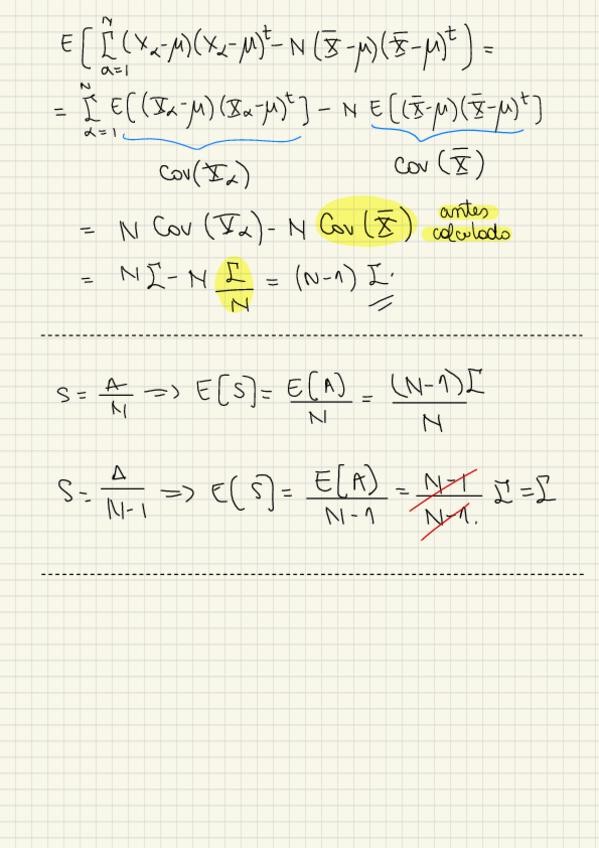 E[ Σ_{α=1}^{N} (X_α-μ)(X_α-μ)^t - N(X̄-μ)(X̄-μ)^t ] =
= Σ_{α=1}^{N} E[(X_α-μ)(X_α-μ)^t] - N E[(X̄-μ)(X̄-μ)^t]
Cov(X_α) Cov(X̄)
= N Cov(X_α) - N Cov(X̄) antes calculado
= NΣ - N Σ/N = (N-1) Σ.
S = A/N => E[S] = E[A]/N = (N-1)Σ/N
S = A/N-1 => E[S] = E[A]/N-1 = N-1/N-1. Σ = Σ